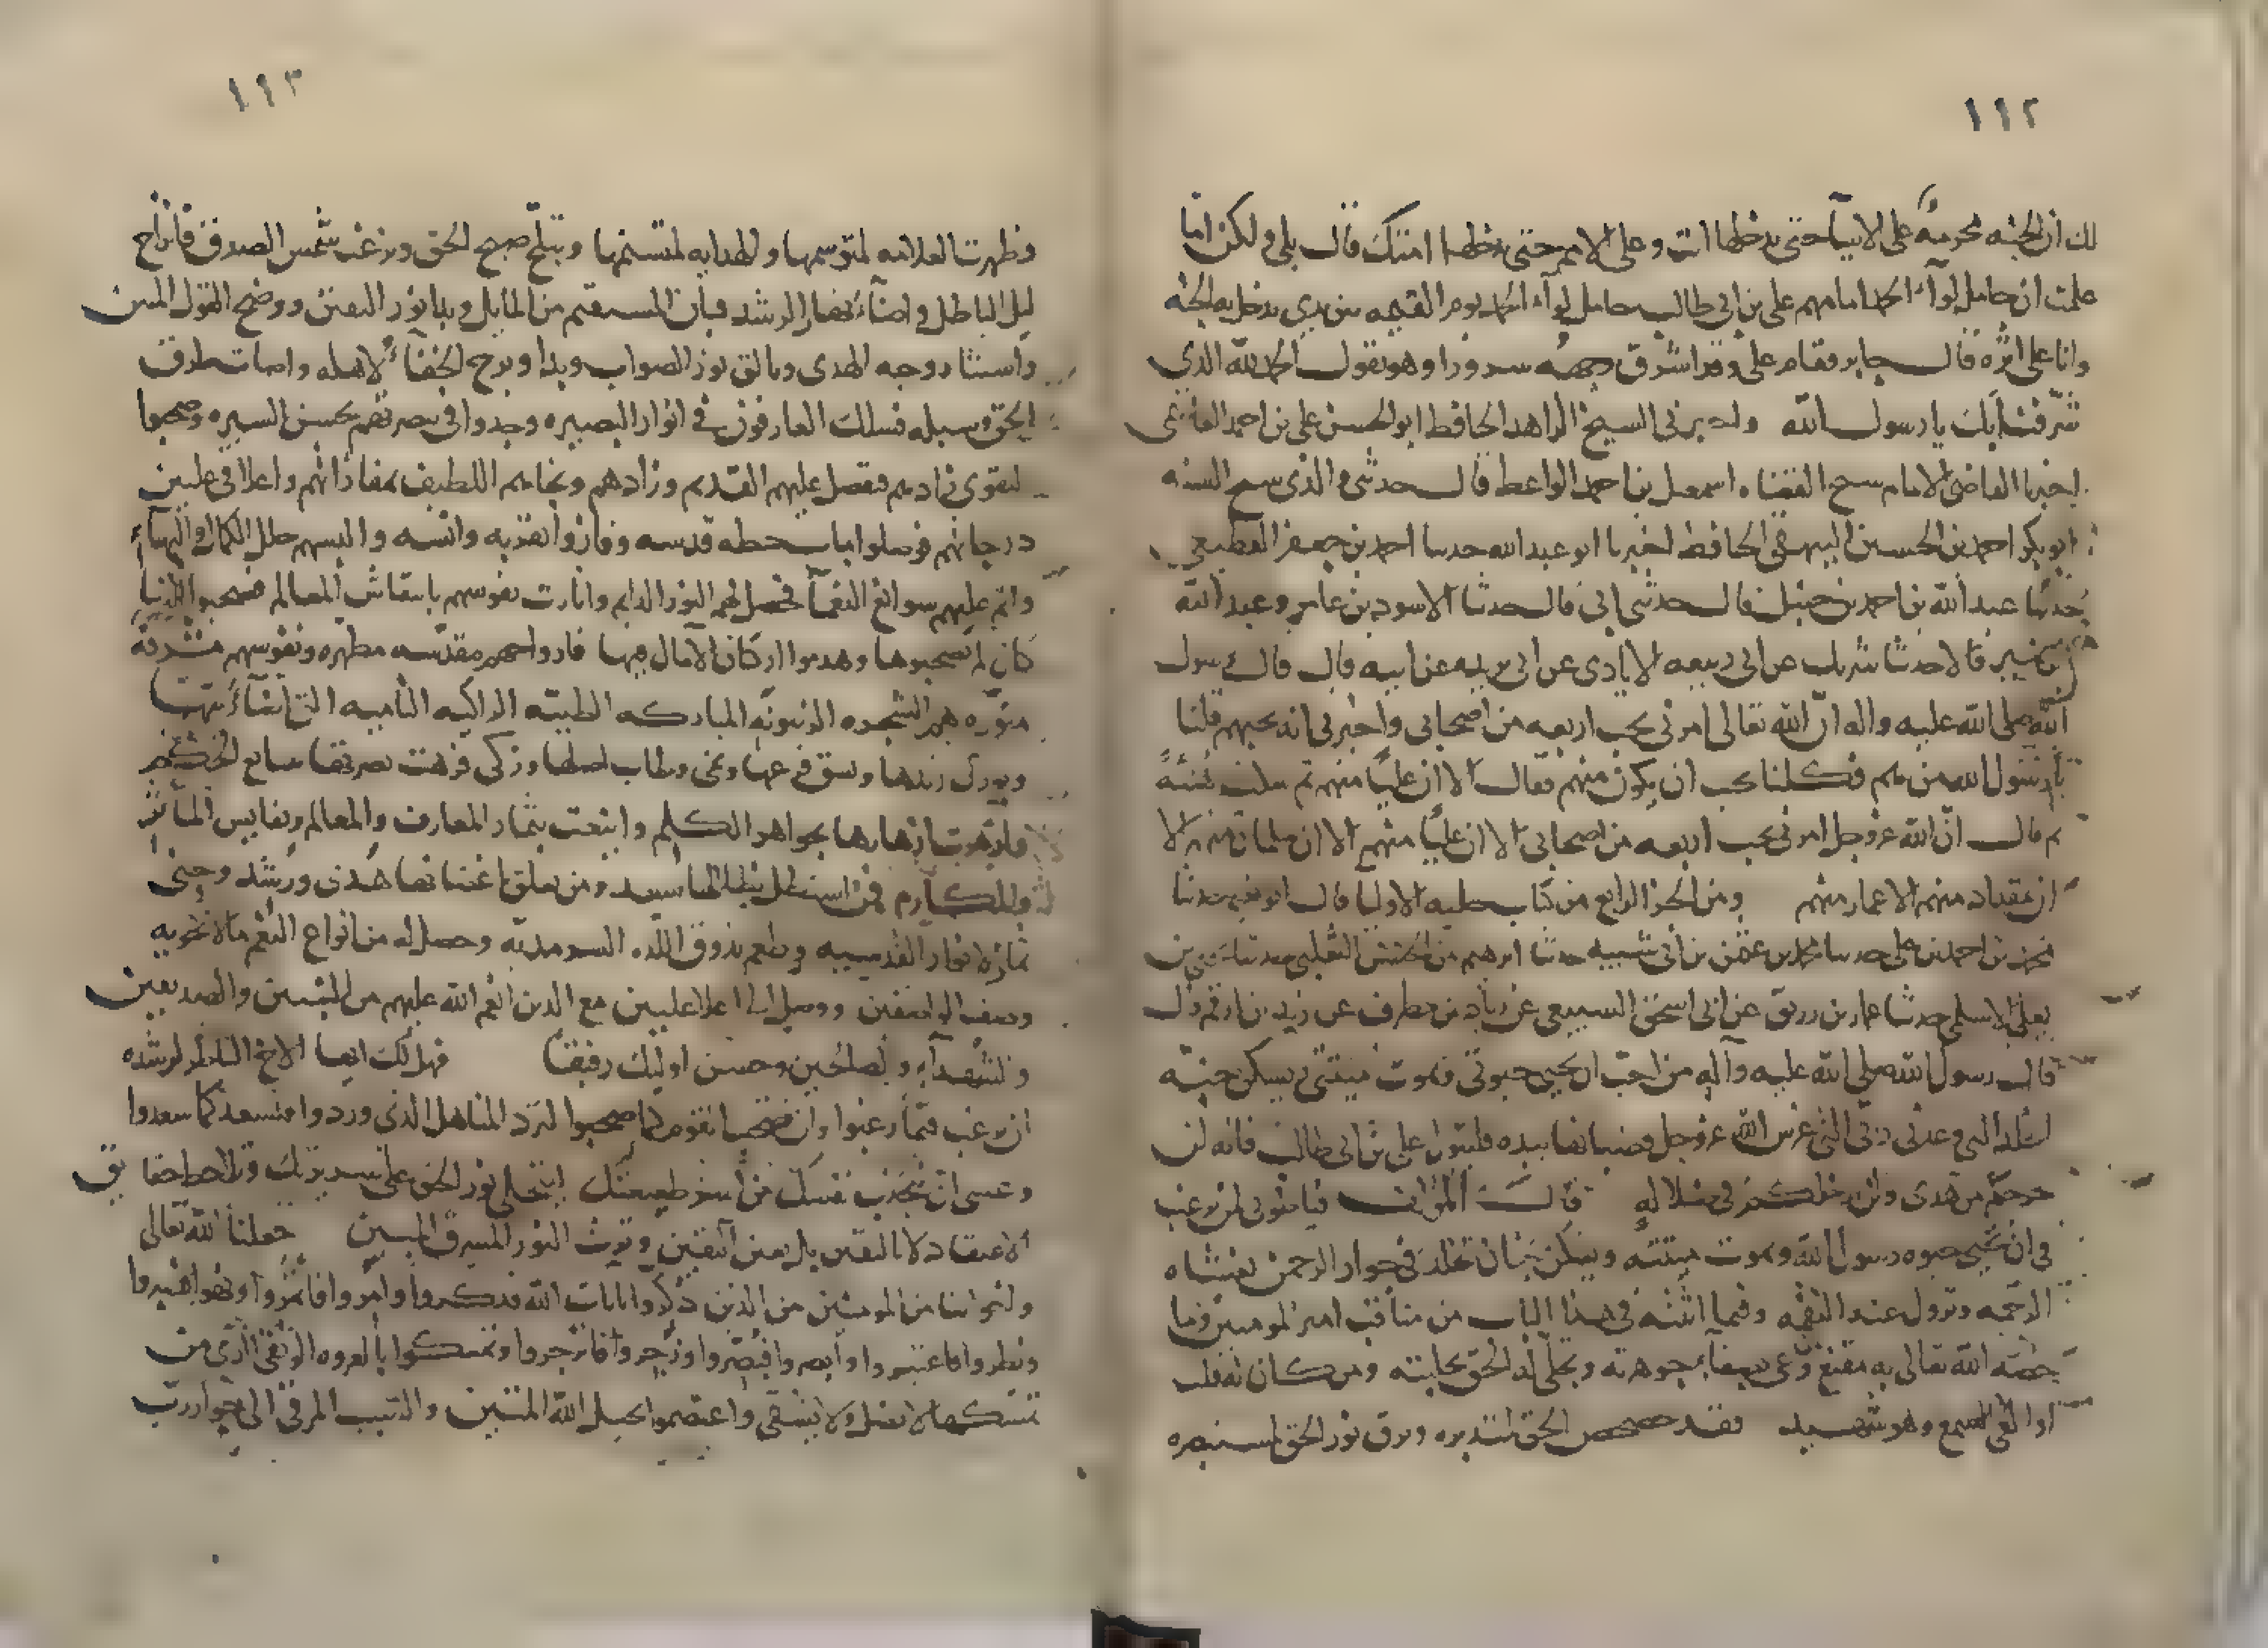 ١١٢
لك ان الجنه محرمة على الانبيآ حتى تدخلها انت وعلى الامم حتى تدخلها امتك قال بلى ولكن اما
علمت ان حامل لوآء الحمد امامهم على بن ابى طالب حامل لوآء الحمد يوم القيمه بين يدى يدخل به الجنه
وانا على اثره قال جابر فقام على وقد اشرق وجهه سرورا وهو يقول الحمد لله الذى
شرفنى بك يا رسول الله واخبرنى الشيخ الزاهد الحافظ ابو الحسن على بن احمد العاصمى
اخبرنا القاضى الامام شيخ القضاه اسمعيل بن احمد الواعظ قال حدثنى والدى شيخ السنه
ابو بكر احمد بن الحسين البيهقى الحافظ اخبرنا ابو عبد الله حدثنا احمد بن جعفر القطيعى
حدثنا عبد الله بن احمد بن حنبل قال حدثنى ابى قال حدثنا الاسود بن عامر وعبد الله
بن نمير قالا حدثنا شريك عن ابى ربيعه الايادى عن ابى بريده عن ابيه قال قال رسول
الله صلى الله عليه واله ان الله تعالى امرنى بحب اربعه من اصحابى واخبرنى انه يحبهم قلنا
يا رسول الله من هم فكلنا نحب ان يكون منهم فقال الا ان عليا منهم ثم سكت
ثم قال ان الله عز وجل امرنى بحب اربعه من اصحابى الا ان عليا منهم الا ان سلمان منهم الا
ان مقداد منهم الا عمار منهم ومن الجز الرابع من كتاب حليه الاوليا قال ابو نعيم حدثنا
محمد بن احمد بن على حدثنا محمد بن عثمن بن ابى شيبه حدثنا ابرهيم بن التغلبى حدثنا يحيى بن
يعلى الاسلمى حدثنا عمار بن رزيق عن ابى اسحق السبيعى عن زياد بن مطرف عن زيد بن ارقم قال
قال رسول الله صلى الله عليه وآله من احب ان يحيى حيوتى ويموت ميتتى ويسكن جنه
الخلد التى وعدنى ربى التى غرس الله عز وجل قضبانها بيده فليتول على بن ابى طالب فانه لن
يخرجكم من هدى ولن يدخلكم فى ضلاله قال المؤلف فيا طوبى لمن رغب
فى ان يحيى حيوه رسول الله ويموت ميتته ويسكن جنان تخلد فى جوار الرحمن يغشاه
الرحمه وتزول عنه النقمه وفيما اثبته فى هذا الباب من مناقب امير المومنين وما
خصه الله تعالى به مقنع بصفآء جوهرته وتجلى له الحق بحليته ومن كان له قلب
او القى السمع وهو شهيد فقد حصحص الحق لمتدبره وبرق نور الحق لمستبصره
١١٣
وظهرت العلامه لمتوسمها والهدايه لمتسنمها وتبلج صبح الحق وبزغت شمس الصدق فانزاح
ليل الباطل واضآء نهار الرشد فبان المستقيم من المايل وبدا نور اليقين ووضح القول المبين
واستنار وجه الهدى وتالق نور الصواب وبدا وبرح الخفآء لاهله واضات طرق
الحق وسبله فسلك العارفون فى انوار البصيره وجدوا فى سيرهم بحسن السيره وصحبوا
التقوى زادهم فتفضل عليهم القديم وزادهم ونجاهم اللطيف بمفازاتهم واعلا فى عليين
درجاتهم فوصلوا الى باب حطه قدسه وفازوا بقربه وانسه والبسهم حلل الكمال والبهآء
واتم عليهم سوابغ النعمآ فحصل لهم النور الدايم وانارت نفوسهم بانتقاش المعالم فصحبوا الدنيا
كان لم يصحبوها وهدموا اركان الآمال فيها فارواحهم مقدسه مطهره ونفوسهم مشرقة
منوره هم الشجره الزيتونه المباركه الطيبه الزاكيه الناميه التى
وبورك زندها وسق فرعها ونمى وطاب اصلها وزكى
فازهرت ازهارها بجواهر الكلم واينعت بثمار المعارف والمعالم ونفايس المآثر
والمكارم فمن استظل بظلالها سعد ومن تعلق باغصانها هدى ورشد وجنى
ثمارها القدسيه وطعم بذوق اللذه السرمديه وحصل له من انواع النعم مالا تحويه
وصف الواصفين ووصل الى اعلا عليين مع الذين انعم الله عليهم من النبيين والصديقين
والشهدآء والصالحين وحسن اوليك رفيقا فهل لك ايها الاخ الناظر لرشده
ان ترغب فيما رغبوا وان تصحب القوم كما صحبوا لترد المناهل الذى وردوا فتسعد كما سعدوا
وعسى ان تجذب نفسك من اسر طبيعتك ليتجلى نور الحق على سريرتك وتلاحظ حقايق
الاعتقاد لا بالتقين بل بعين اليقين وترث النور المشرق المبين جعلنا الله تعالى
واخواننا من المومنين من الذين ذكروا بايات الله فذكروا وامروا فائتمروا ونهوا
ونظروا فاعتبروا وابصروا فبصروا وزجروا فانزجروا وتمسكوا بالعروه الوثقى الذى من
تمسك بها لا يضل ولا يشقى واعتصموا بحبل الله المتين والسبب المرقى الى جوار رب